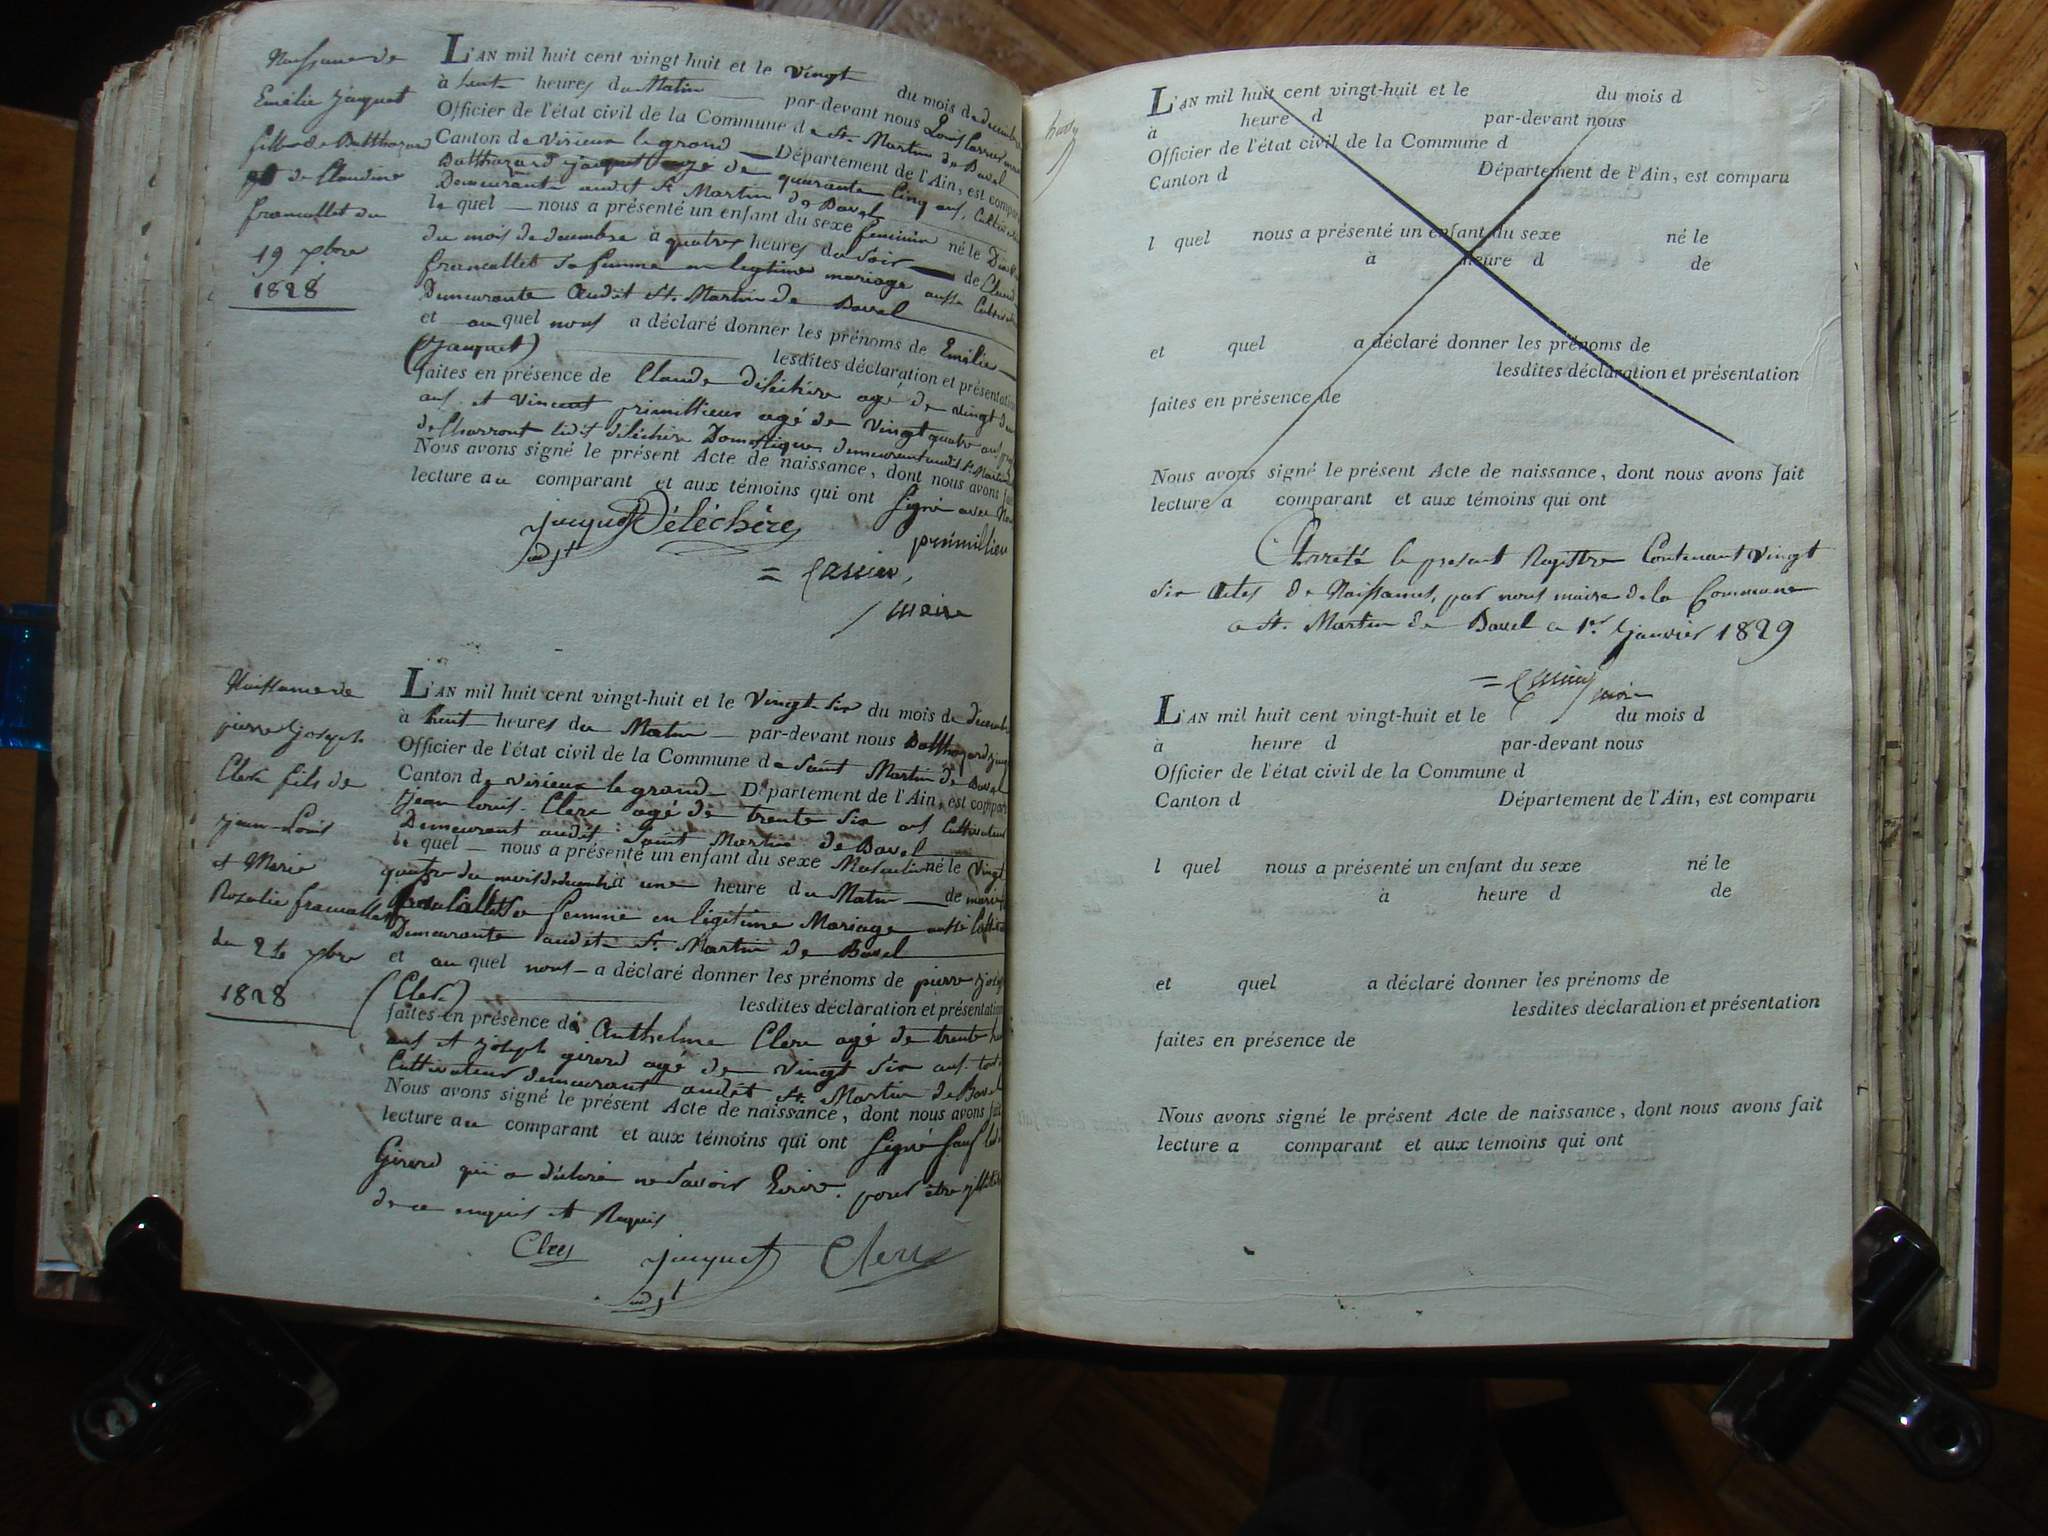 Naissance de
Emélie jaquet
fille de Balthazard
et de Claudine
francallet du
19 xbre
1828
L'AN mil huit cent vingt huit et le vingt du mois de decembre
à huit heures du Matin par-devant nous Louis
Officier de l'état civil de la Commune de St. Martin de Bavel
Canton de Virieux le grand Département de l'Ain, est compar
Balthazard jaquet agé de quarante Cinq ans, Cultiv
Demeurante audit St Martin de Bavel
le quel nous a présenté un enfant du sexe feminin né le Dix
du mois de decembre à quatres heures du Soir de Claud
francallet sa femme en legitime mariage aussi Cultiv
Demeurante Audit St. Martin de Bavel
et au quel nous a déclaré donner les prénoms de Emélie
(Jaquet) lesdites déclaration et présentation
faites en présence de Claude Déléchère agé de vingt
ans et Vincent primillieux agé de Vingt quatre ans
de Charront ledit déléchère Domestique demeurant audit St. Martin
Nous avons signé le présent Acte de naissance, dont nous avons fait
lecture au comparant et aux témoins qui ont Signé avec Nous
jaquet Déléchère
adjt primillieu
= Carrier,
maire
Naissance de
pierre joseph
Clerc fils de
jean-Louis
et Marie
Rozalie francallet
du 24 xbre
1828
L'AN mil huit cent vingt-huit et le Vingt Six du mois de decemb
à huit heures du Matin par-devant nous Balthazard jaq
Officier de l'état civil de la Commune de Saint Martin de Bavel
Canton de Virieux le grand Département de l'Ain, est compar
jean louis Clerc agé de trente Six ans Cultivateur
Demeurant audit Saint Martin de Bavel
le quel nous a présenté un enfant du sexe Masculin né le Vingt
quatre du mois de decembre à une heure du Matin de marie
francallet Sa femme en légitime Mariage aussi Cultiv
Demeurante audit St. Martin de Bavel
et au quel nous a déclaré donner les prénoms de pierre joseph
(Clerc) lesdites déclaration et présentation
faites en présence de Anthelme Clerc agé de trente
ans et joseph girerd agé de Vingt Six ans tous
Cultivateur demeurant audit St. Martin de Bavel
Nous avons signé le présent Acte de naissance, dont nous avons fait
lecture au comparant et aux témoins qui ont Signé Sauf led
Girerd qui a déclaré ne Savoir Ecrire pour être illitéré
de ce enquis et Requis
Clerc jaquet Clerc
adjt
L'AN mil huit cent vingt-huit et le du mois d
à heure d par-devant nous
Officier de l'état civil de la Commune d
Canton d Département de l'Ain, est comparu
l quel nous a présenté un enfant du sexe né le
à heure d de
et quel a déclaré donner les prénoms de
lesdites déclaration et présentation
faites en présence de
Nous avons signé le présent Acte de naissance, dont nous avons fait
lecture a comparant et aux témoins qui ont
Arreté le present Registre Contenant Vingt
Six Actes de Naissances, par nous maire de la Commune
de St. Martin de Bavel a 1er. janvier 1829
= Carrier maire
L'AN mil huit cent vingt-huit et le du mois d
à heure d par-devant nous
Officier de l'état civil de la Commune d
Canton d Département de l'Ain, est comparu
l quel nous a présenté un enfant du sexe né le
à heure d de
et quel a déclaré donner les prénoms de
lesdites déclaration et présentation
faites en présence de
Nous avons signé le présent Acte de naissance, dont nous avons fait
lecture a comparant et aux témoins qui ont